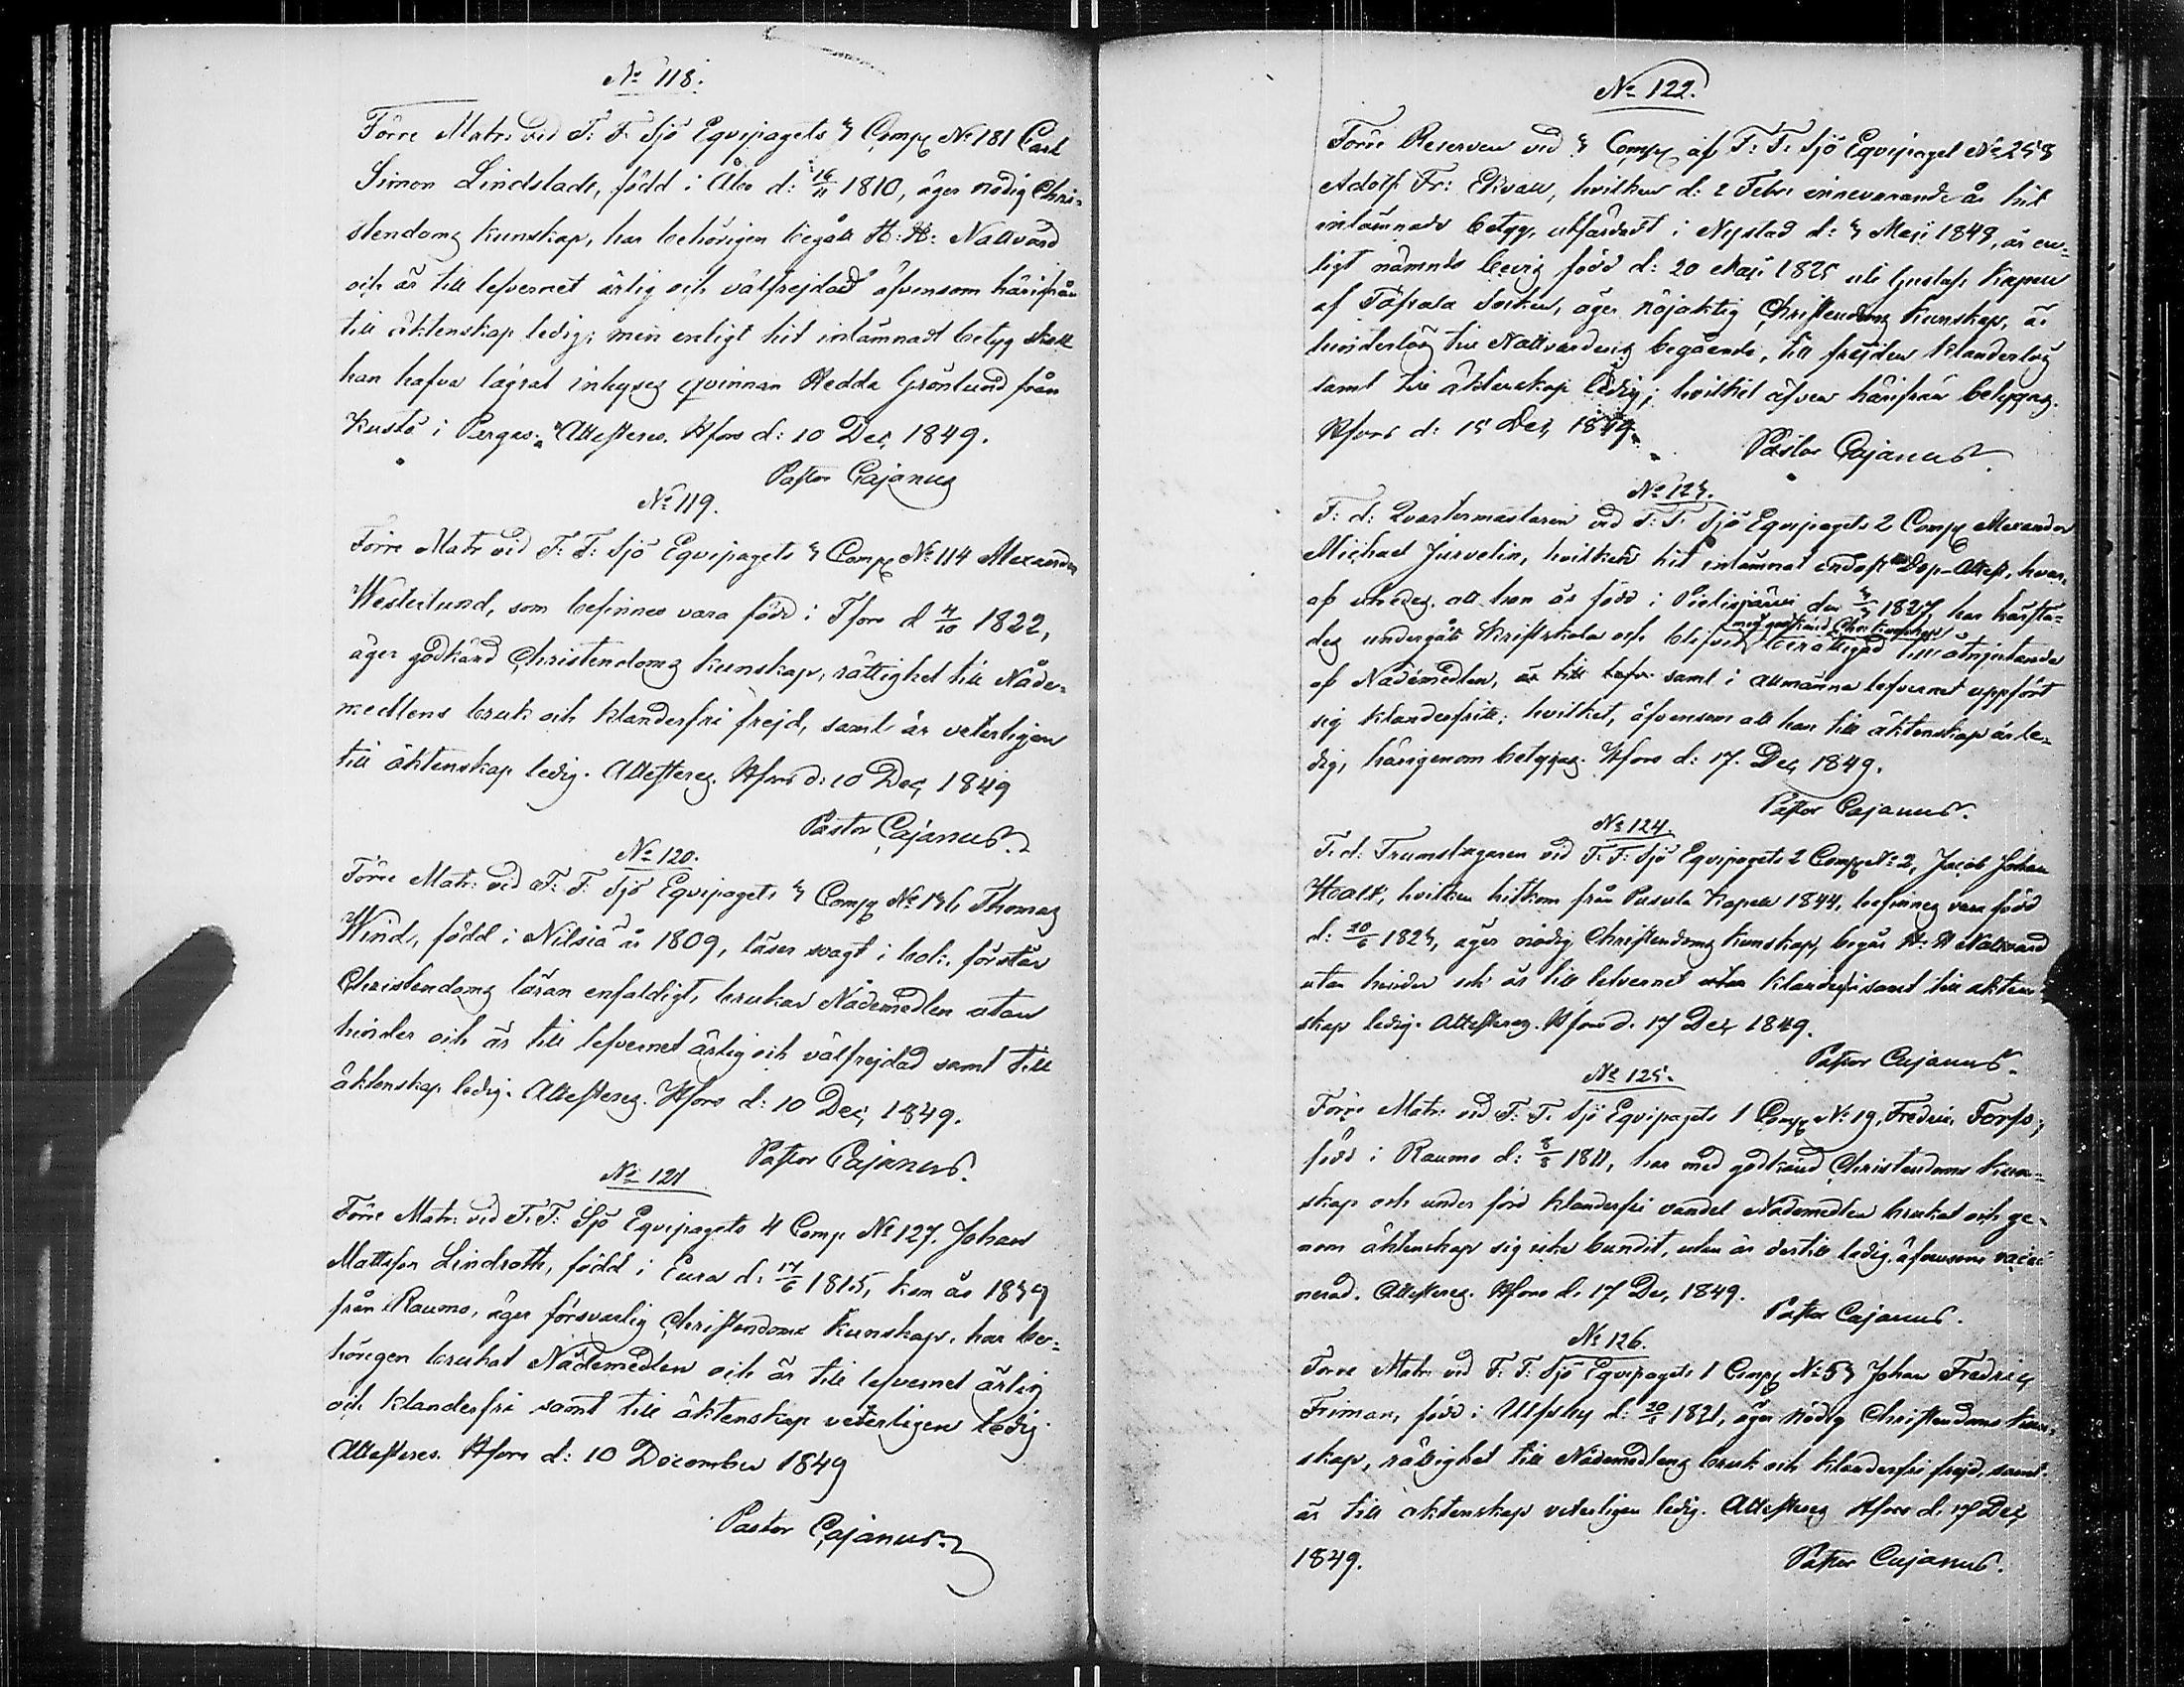 No 118.
Förre Matr. vid F: F. Sjö Equipagets 3 Comp No 181 Carl
Simon Lindstadt, född i Åbo d: 16/11 1810, äger nödig Chri-
stendoms kunskap, har behörigen begått H: H: Nattvard
och är till lefvernet ärlig och välfrejdad äfvensom härifrån
till äktenskap ledig; men enligt hit inlämnadt betyg skall
han hafva lägrat inhyses qvinnan Hedda Grönlund från
Kustö i Pargas. Attesteres. Hfors d: 10 Dec 1849.
Pastor Cajanus
No 119.
Förre Matr vid F: F: Sjö Equipagets 3 Comp No 114 Alexander
Westerlund, som befinnes vara född i Hfors d 4/10 1822,
äger godkänd Christendoms kunskap, rättighet till Nåde-
medlens bruk och klanderfri frejd, samt är veterligen
till äktenskap ledig. Attesteres. Hfors d: 10 Dec 1849
Pastor Cajanus.
No 120.
Förre Matr: vid F: F: Sjö Equipagets 3 Comp No 136 Thomas
Wind, född i Nilsiä år 1809, läser svagt i bok, förstår
Christendoms läran enfaldigt, brukar Nådemedlen utan
hinder och är till lefvernet ärlig och välfrejdad samt till
äktenskap ledig. Attesteres. Hfors d: 10 Dec 1849.
Pastor Cajanus.
No 121
Förre Matr: vid F. F: Sjö Equipagets 4 Comp No 127. Johan
Mattsson Lindroth, född i Eura d: 17/6 1815, kom år 1839
från Raumo, äger försvarlig Christendoms kunskap, har be-
hörigen brukat Nådemedlen och är till lefvernet ärlig
och klanderfri samt till äktenskap veterligen ledig
Attesteres. Hfors d: 10 December 1849
Pastor Cajanus.
No 122.
Förre Reserven vid 3 Comp af F: F: Sjö Equipaget No 258
Adolf Fr: hvilken d: 2 Febr: innevarande år hit
inlämnade betyg, utfärdadt i Nystad d: 3 Maji 1848, är en-
ligt nämnde bevis född d: 20 Maji 1825 uti Gustafs Kapell
af Töfsala Socken, äger nöjaktig Christendoms kunskap, är
hinderlös till Nattvardens begående, till frejden klanderlös
samt till äktenskap ledig; hvilket äfven härifrån betygas.
Hfors d: 15 Dec 1849.
Pastor Cajanus.
No 123.
F: d: Qvartermästaren vid F: F: Sjö Equipagets 2 Comp Alexander
Michael Jurvelin, hvilken hit inlämnat endast en Dop-Attest, hvar-
af utredes, att han är född i Pielisjärvi den 3/3 1827, har härstä-
des undergått Skriftskola och blifvit med godkänd Chr. kunskap berättigad till åtnjutande
af Nådemedlen, är till lefv: samt i allmänna lefvernet uppfört
sig klanderfritt; hvilket, äfvensom att han till äktenskap är le-
dig, härigenom betygas. Hfors d: 17. Dec 1849.
Pastor Cajanus.
No 124.
F: d: Trumslagaren vid F: F: Sjö Equipagets 2 Comp No 2, Jacob Johan
Hvalt, hvilken hitkom från Pusula Kapell 1844, befinnes vara född
d: 20/6 1823, äger nödig Christendoms kunskap, begår H: H Nattvard
utan hinder och är till lefvernet utan klanderfri samt till äkten-
skap ledig. Attesteres. Hfors d. 17 Dec 1849.
Pastor Cajanus.
No 125.
Förre Matr: vid F: F. Sjö Equipagets 1 Comp No 19, Fredric Forss,
född i Raumo d: 8/8 1811, har med godkänd Christendoms kun-
skap och under förd klanderfri vandel Nådemedlen brukat och ge-
nom äktenskap sig icke bundit, utan är dertill ledig, äfvensom vacci-
nerad. Attesteres. Hfors d. 17 Dec 1849.
Pastor Cajanus.
No 126.
Förre Matr vid F: F: Sjö Equipagets 1 Comp No 53 Johan Fredric
Friman, född i Ulfsby d: 1821, äger nödig Christendoms kun-
skap, rättighet till Nådemedlens bruk och klanderfri frejd, samt
är till äktenskap veterligen ledig. Attesteres Hfors d. 17 Dec
1849.
Pastor Cajanus.